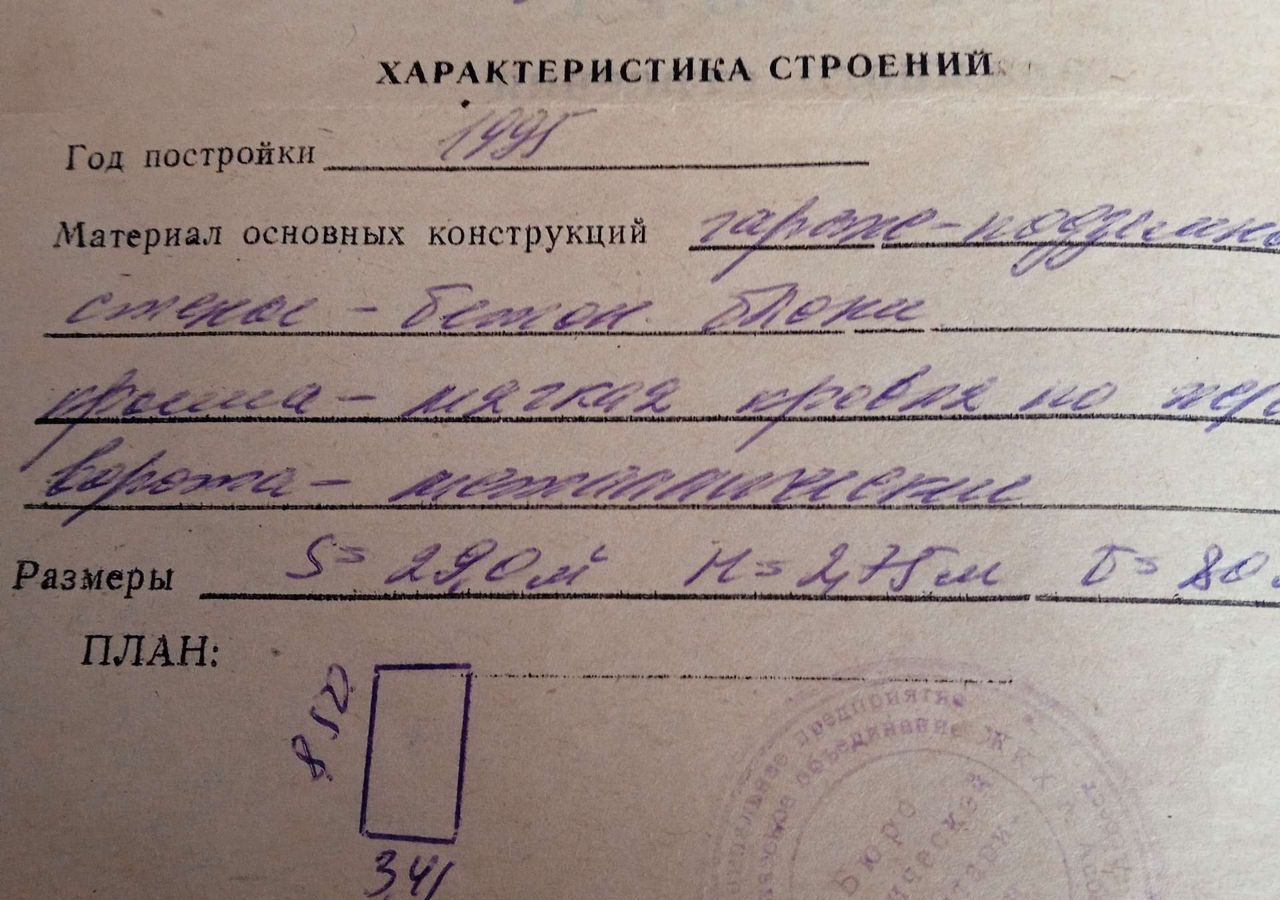 ХАРАКТЕРИСТИКА СТРОЕНИЙ
Год постройки 1995
Материал основных конструкций гараж-подземн
стены - бетон. блоки
крыша - мягкая кровля по жел
ворота - металлические
Размеры S= 29,0 м² H= 2,75м V= 80
ПЛАН:
8,52
3,41
предприятие
объединение ЖКХ
Бюро